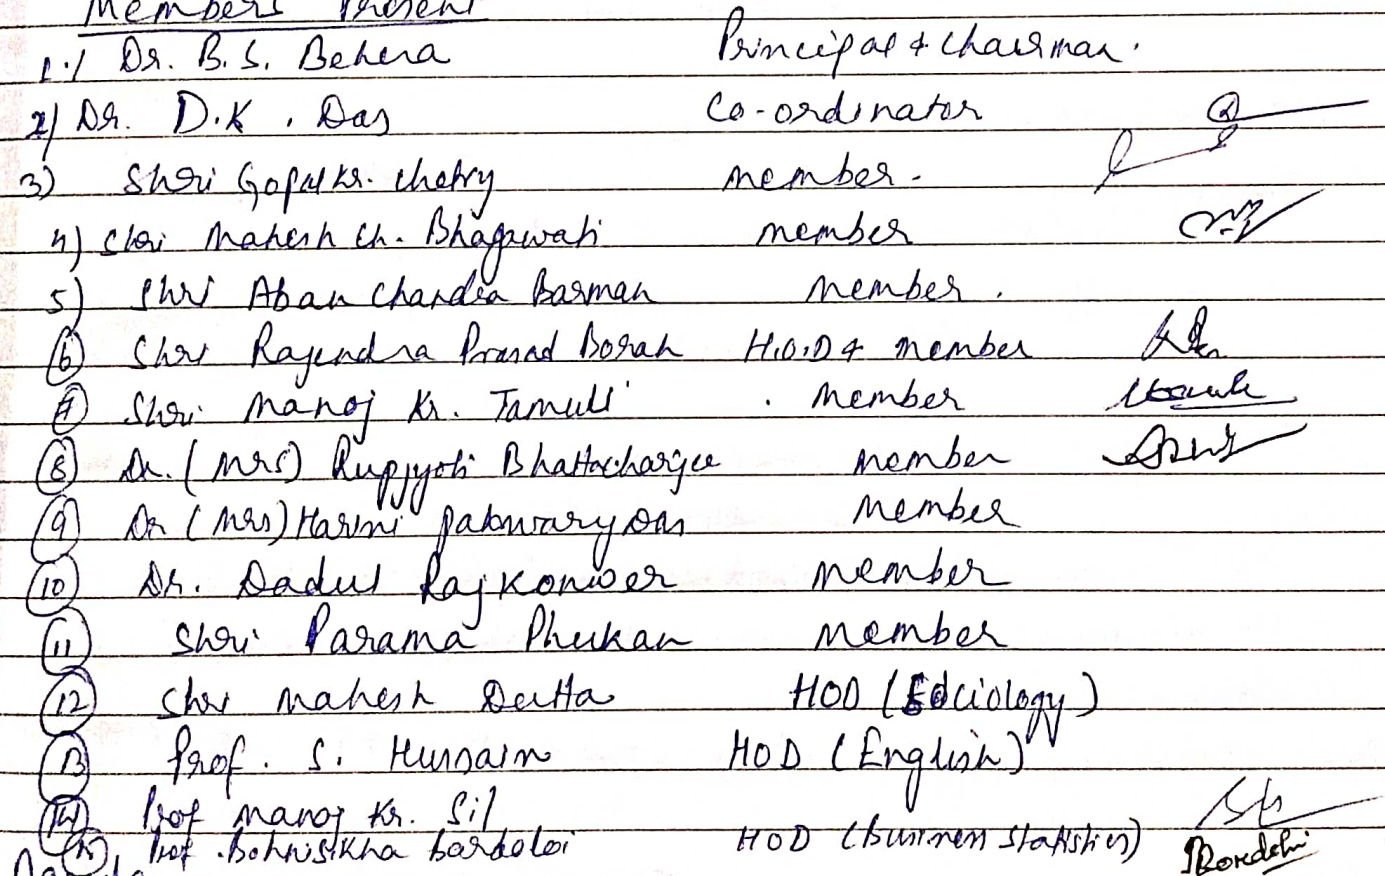 Members Present
1.) Dr. B. S. Behera Principal & Chairman.
2) Dr. D.K. Das Co-ordinator
3) Shri Gopal Kr. Chetry member.
4) Shri Mahesh Ch. Bhagawati member
5) Shri Aban Chandra Barman member.
6 Shri Rajendra Prasad Borah H.O.D & member
7 Shri Manoj Kr. Tamuli member
8 Dr. (Mrs) Rupjyoti Bhattacharjee member
9 Dr (Mrs) Harini Patowary Das member
10 Dr. Dadul Rajkonwer member
11 Shri Parama Phukan member
12 Shri Mahesh Dutta HOD (Sociology)
13 Prof. S. Hussain HOD (English)
14 Prof Manoj Kr. Sil
15 Prof. Bohnisikha Bordoloi HOD (Business Statistics) Bordoloi